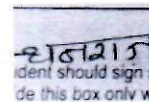 ધનરાજ
ident should sign
de this box only w